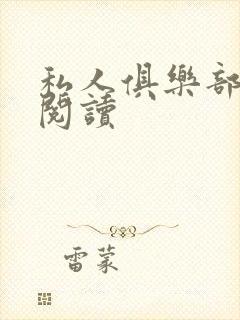 私人俱樂部
閱讀
雷蒙